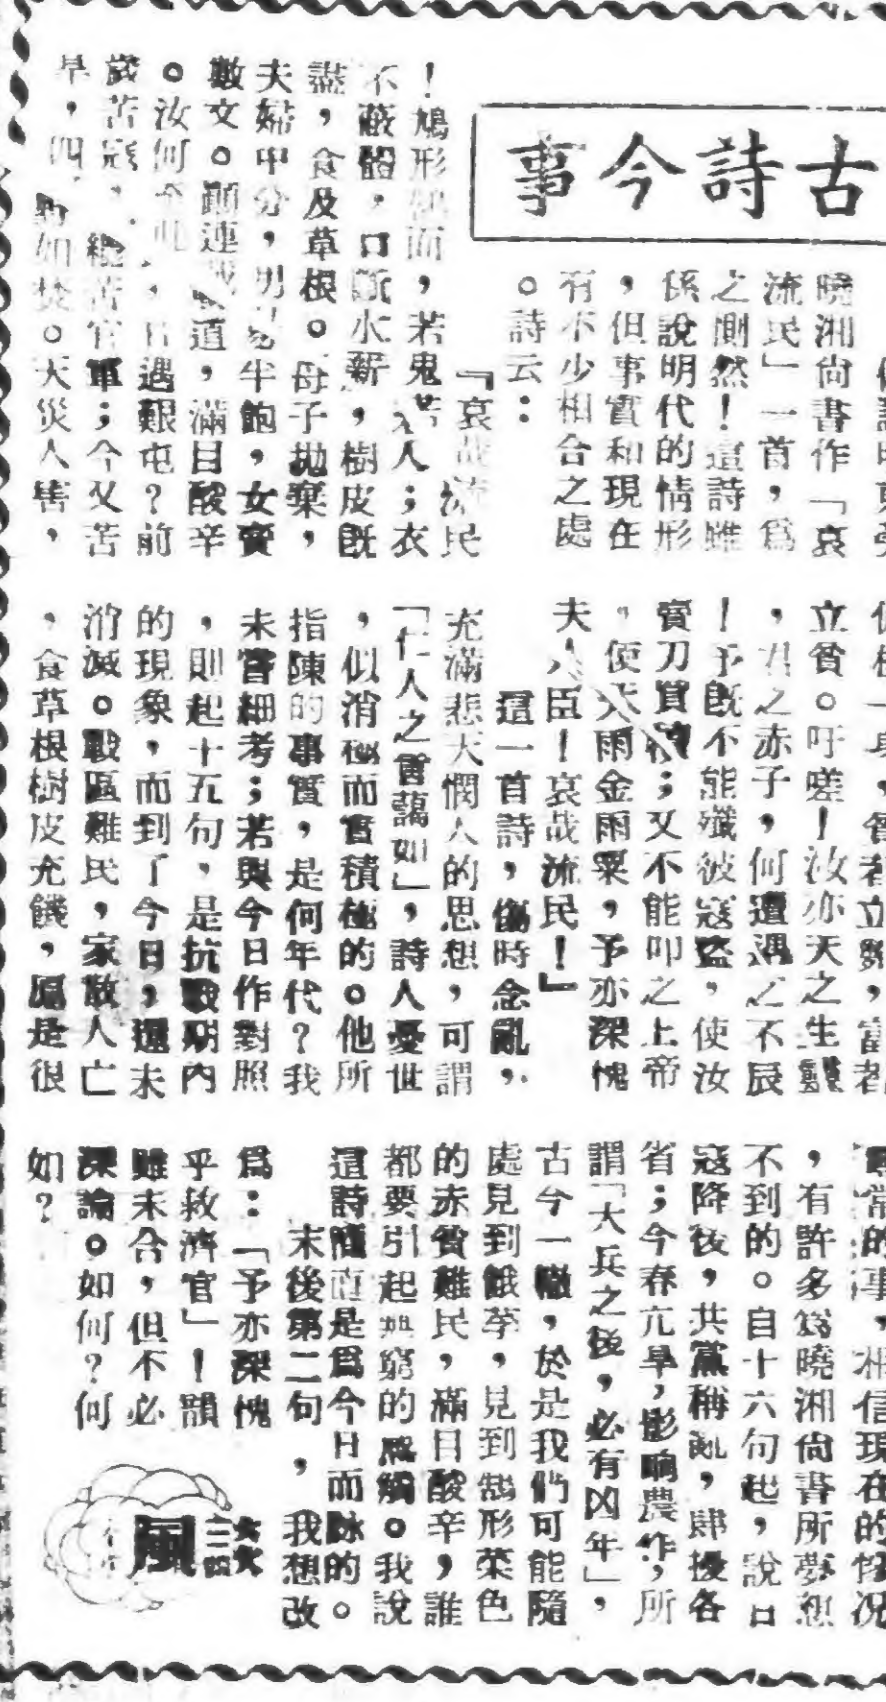 古詩今事
曉湘尚書作「哀
流民」一首，爲
之惻然！這詩雖
係說明代的情形
，但事實和現在
有不少相合之處
。詩云：
『哀哉流民
！鳩形鵠面，若鬼若人；衣
不蔽體，口斷水薪，樹皮既
盡，食及草根。母子拋棄，
夫婦中分，男易半飽，女賣
數文。顛連載道，滿目酸辛
。汝何今此，日遇艱屯？前
歲苦寇，繼苦官軍；今又苦
旱，四野如焚。天災人害，
立貧。吁嗟！汝亦天之生靈
，君之赤子，何遭遇之不辰
！予既不能殲彼寇盜，使汝
賣刀買犢；又不能叩之上帝
，使天雨金雨粟，予亦深愧
夫人臣！哀哉流民！』
這一首詩，傷時念亂，
充滿悲天憫人的思想，可謂
「仁人之言藹如」，詩人憂世
，似消極而實積極的。他所
指陳的事實，是何年代？我
未嘗細考；若與今日作對照
，則起十五句，是抗戰期內
的現象，而到了今日，還未
消滅。戰區難民，家散人亡
，食草根樹皮充饑，原是很
尋常的事，相信現在的情況
，有許多爲曉湘尚書所夢想
不到的。自十六句起，說日
寇降後，共黨稱亂，肆擾各
省；今春亢旱，影響農作，所
謂「大兵之後，必有凶年」，
古今一轍，於是我們可能隨
處見到餓莩，見到鵠形菜色
的赤貧難民，滿目酸辛，誰
都要引起無窮的感觸。我說
這詩簡直是爲今日而詠的。
末後第二句，我想改
爲：「予亦深愧
乎救濟官」！韻
雖未合，但不必
深論。如何？何
如？
風